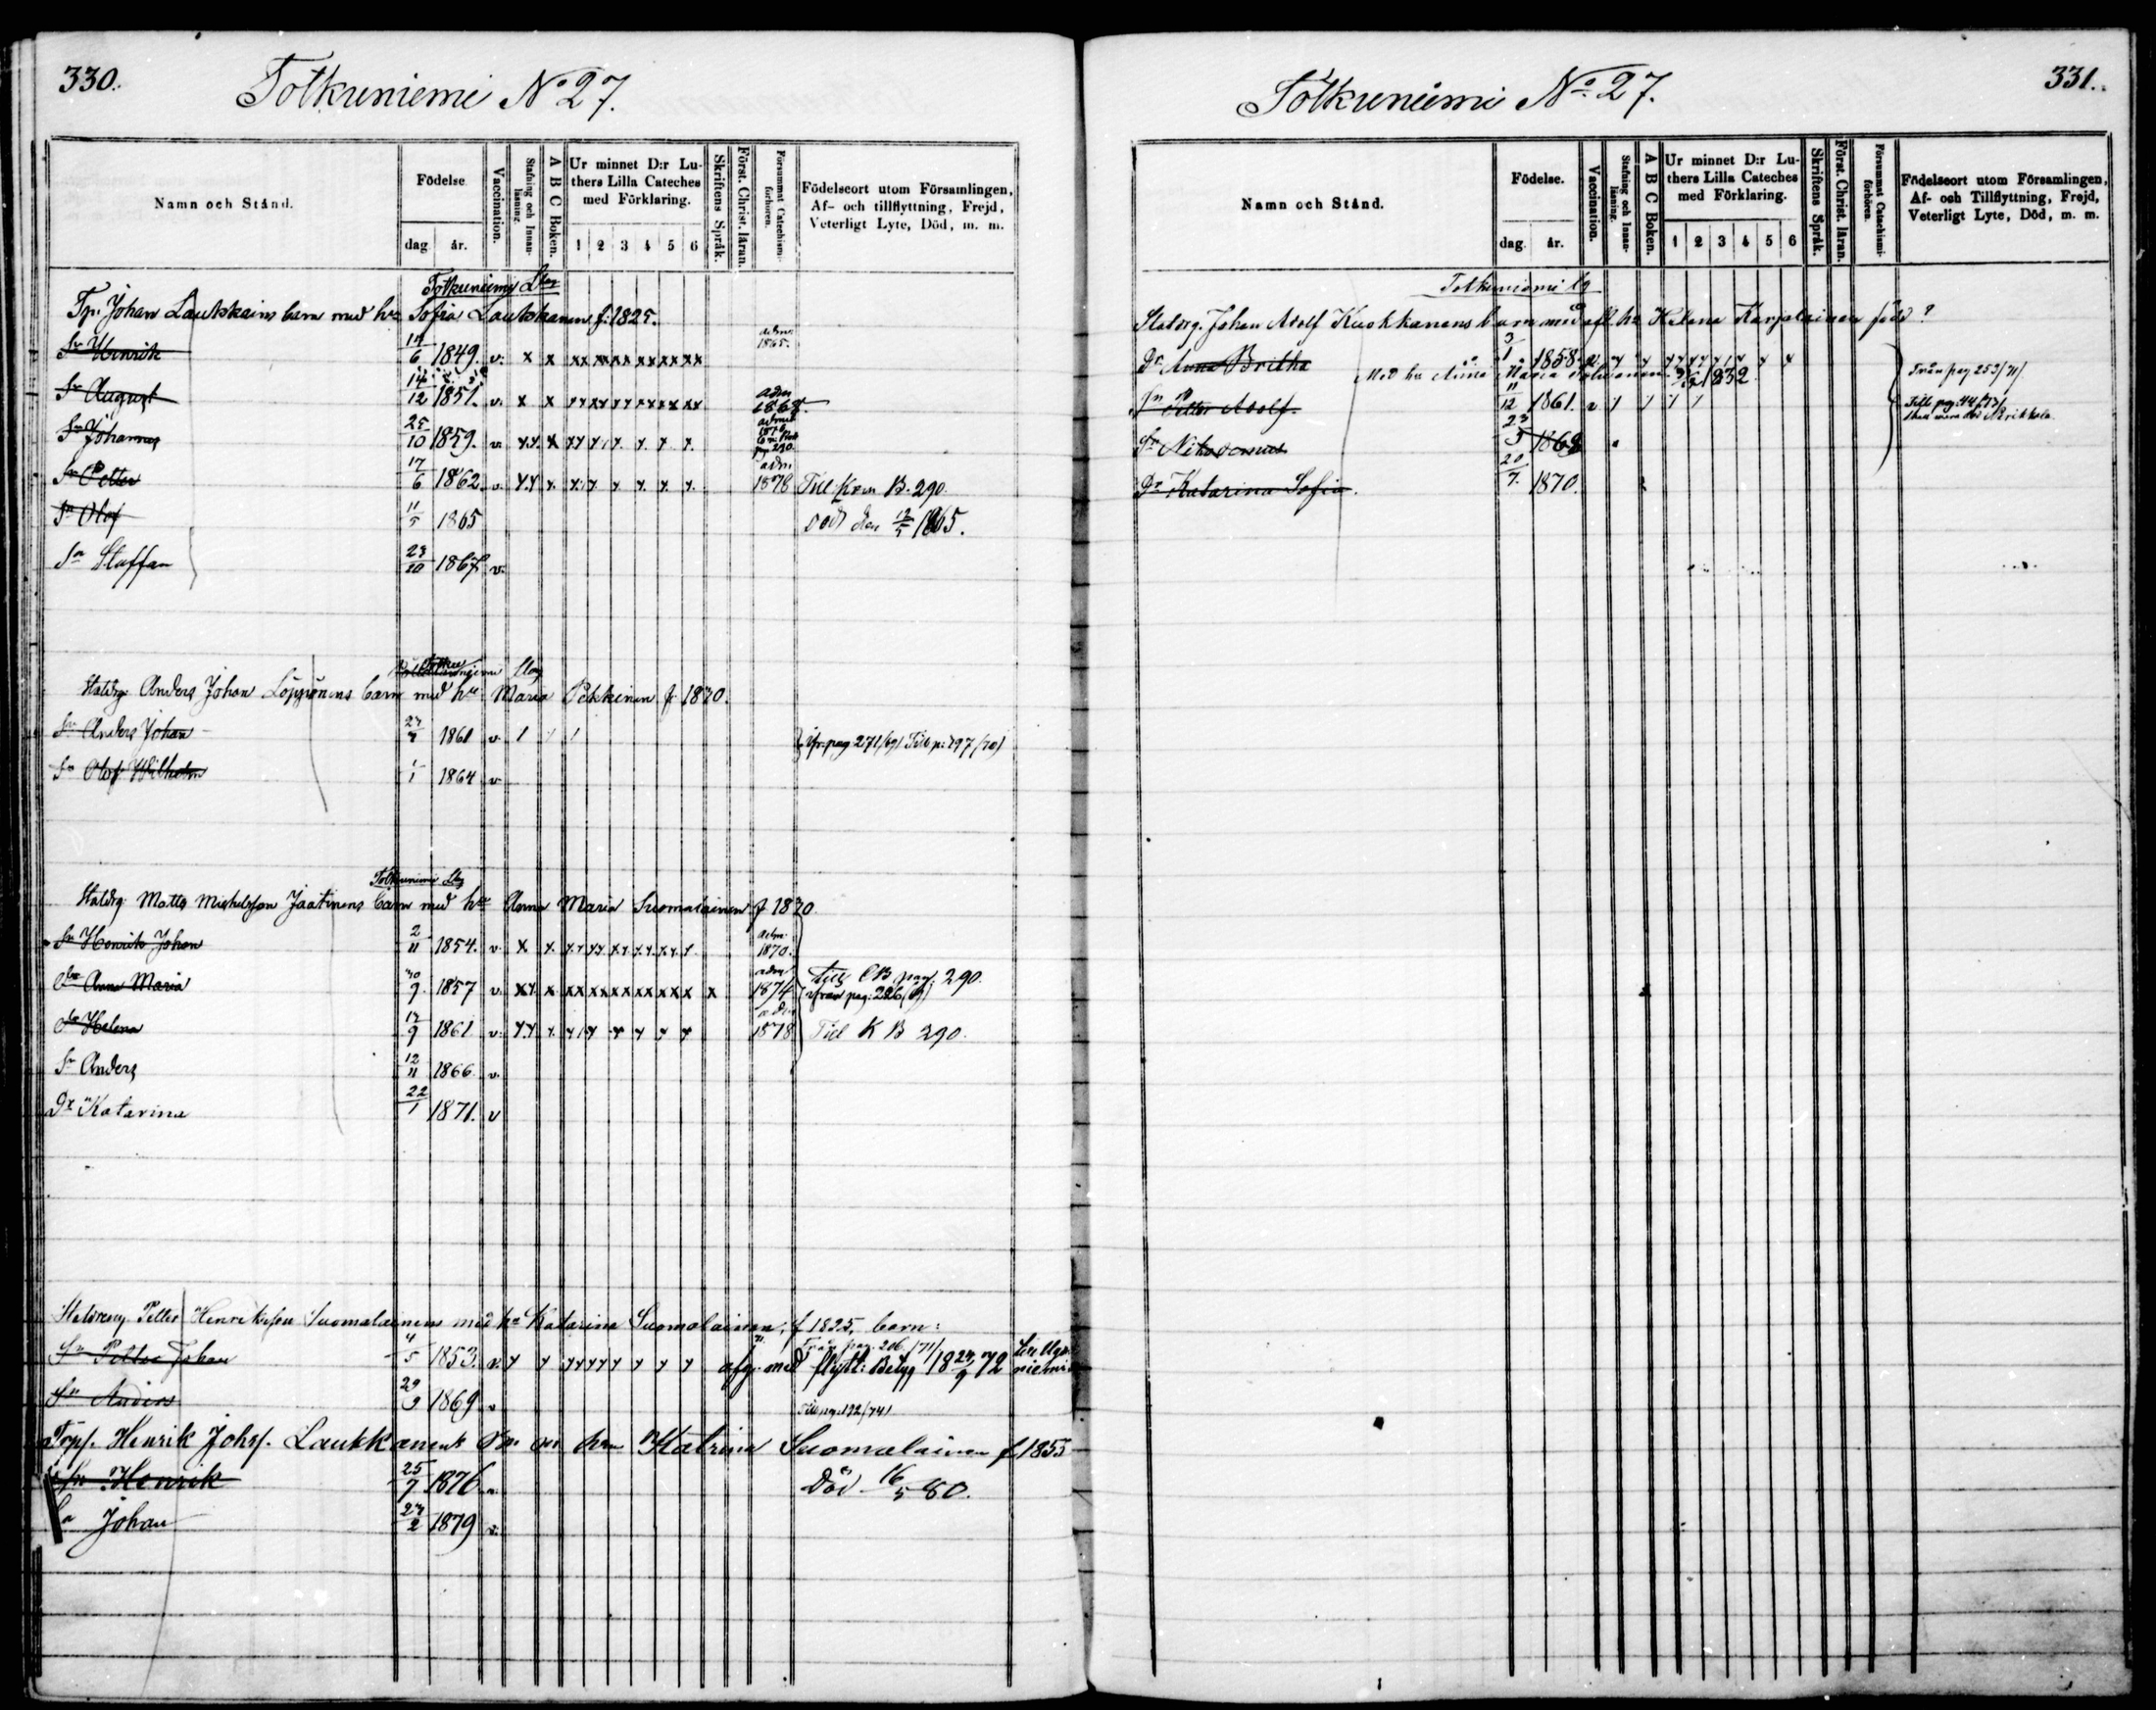 330.
Totkuniemi No 27.
Namn och Stånd.
Födelse
dag. år.
Vaccination.
Stafning och Innanläsning.
A B C Boken.
Ur minnet D:r Luthers Lilla Cateches med Förklaring.
1 2 3 4 5 6
Skriftens Språk.
Först. Christ. läran.
Försummat Catechismiförhören.
Födelseort utom Församlingen, Af- och tillflyttning, Frejd, Veterligt Lyte, Död, m. m.
Totkuniemi
Johan Laukkains barn med hu Sofia Laukkanen f. 1825.
Sn Henrik 14/6 1849. v. x x xx xx xx xx xx xx adm. 1865.
Sn August 14/12 1851. v. x x adm 1868.
Sn Johannes 25/10 1859. v.
Sn Petter 17/6 1862. v. adm 1878 Till Kom B. 290.
Sn Olof 11/5 1865 död den 12/5 1865.
Sn Staffan 1867 v.
Anders Johan Löppönens barn med hu Maria Pekkinen f 1830.
Sn Anders Johan 1861 v. 1 1 1 pag 271/69 Till p: 197/70
Sn Olof Wilhelm 1/1 1864 v
Totkuniemi
Matts Michelsson Jaatinens barn med hu Anna Maria Suomalainen f 1830
Sn Henrik Johan 2/11 1854. v. x x adm. 1870.
Dr Anna Maria 30/9 1857 v. adm 1874 Till CB pag. 290.
från pag: 226/69
Dr Helena 12/9 1861 v. adm 1878 Till K B 290.
Sn Anders 12/11 1866 v.
Dr Katarina 22/1 1871. v
Petter Henriksson Suomalainens med hu Katarina Suomalainen, f 1825, barn:
Från pag. 206/71/
Sn Petter Johan 4/5 1853. v. afg. med flytt: Betyg 18 24/9 72
Sn Anders 29/9 1869 v Till pag 192/74/
Henrik Johs. Laukkanens hu Katrina Suomalainen f 1855
Sn Henrik 25/7 1876 v. Död 16/5 80.
Sn Johan 27/2 1879 v.
331.
Totkuniemi No 27.
Namn och Stånd.
Födelse.
dag. år.
Vaccination.
Stafning och Innanläsning.
A B C Boken.
Ur minnet D:r Luthers Lilla Cateches med Förklaring.
1 2 3 4 5 6
Skriftens Språk.
Först. Christ. läran.
Försummat Catechismiförhören.
Födelseort utom Församlingen, Af- och Tillflyttning, Frejd, Veterligt Lyte, Död, m. m.
Totkuniemi
Johan Adolf Kuokkanens barn med afl. hu Helena Karjalainen född ?
Dr Anna Britha 1858. v
Med hu Anna Maria 1832
Från pag 253/71/
Sn Petter Adolf. 11/12 1861. v 1 1 1 1 Till pag: 44/73/
Sn Nikodemus
Dr Katarina Sofia. 20/7. 1870.